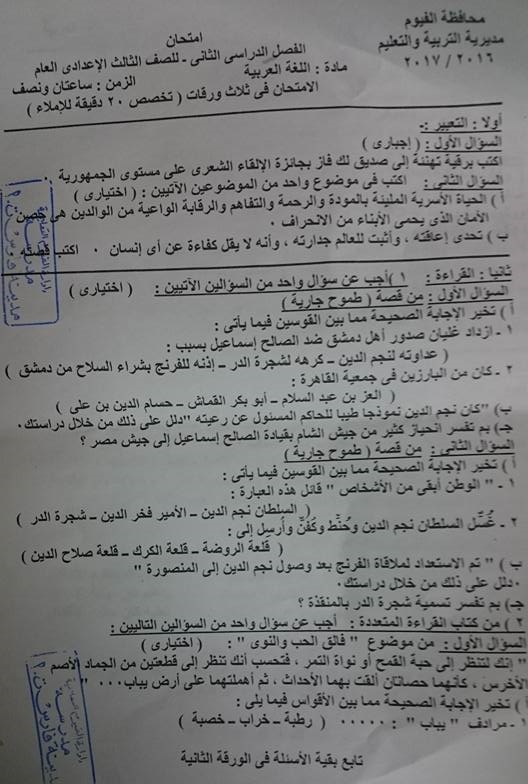 محافظة الفيوم
مديرية التربية والتعليم
٢٠١٦ / ٢٠١٧
امتحان
الفصل الدراسى الثانى - للصف الثالث الإعدادى العام
مادة : اللغة العربية
الزمن : ساعتان ونصف
الامتحان فى ثلاث ورقات ( تخصص ٢٠ دقيقة للإملاء )
أولا : التعبير :-
السؤال الأول : ( إجبارى )
اكتب برقية تهنئة إلى صديق لك فاز بجائزة الإلقاء الشعرى على مستوى الجمهورية .
السؤال الثانى : اكتب فى موضوع واحد من الموضوعين الآتيين : ( اختيارى )
أ ) الحياة الأسرية المليئة بالمودة والرحمة والتفاهم والرقابة الواعية من الوالدين هى حصن
الأمان الذى يحمى الأبناء من الانحراف .
ب ) تحدى إعاقته ، وأثبت للعالم جدارته ، وأنه لا يقل كفاءة عن أى إنسان . اكتب قصته
ثانيا : القراءة : ١ ) أجب عن سؤال واحد من السؤالين الآتيين : ( اختيارى )
السؤال الأول : من قصة ( طموح جارية )
أ ) تخير الإجابة الصحيحة مما بين القوسين فيما يأتى :
١ - ازداد غليان صدور أهل دمشق ضد الصالح إسماعيل بسبب :
( عداوته لنجم الدين – كرهه لشجرة الدر – إذنه للفرنج بشراء السلاح من دمشق )
٢ - كان من البارزين فى جمعية القاهرة :
( العز بن عبد السلام – أبو بكر القماش – حسام الدين بن على )
ب) "كان نجم الدين نموذجا طيبا للحاكم المسئول عن رعيته "دلل على ذلك من خلال دراستك.
جـ) بم تفسر انحياز كثير من جيش الشام بقيادة الصالح إسماعيل إلى جيش مصر ؟
السؤال الثانى : من قصة ( طموح جارية )
أ ) تخير الإجابة الصحيحة مما بين القوسين فيما يأتى :
١ - " الوطن أبقى من الأشخاص " قائل هذه العبارة :
( السلطان نجم الدين – الأمير فخر الدين – شجرة الدر )
٢ - غُسِّل السلطان نجم الدين وحُنِّط وكُفِّن وأُرسِل إلى :
( قلعة الروضة – قلعة الكرك – قلعة صلاح الدين )
ب ) " تم الاستعداد لملاقاة الفرنج بعد وصول نجم الدين إلى المنصورة "
دلل على ذلك من خلال دراستك.
جـ) بم تفسر تسمية شجرة الدر بالمنقذة ؟
٢ ) من كتاب القراءة المتعددة : أجب عن سؤال واحد من السؤالين التاليين :
السؤال الأول : من موضوع " فالق الحب والنوى " : ( اختيارى )
" إنك لتنظر إلى حبة القمح أو نواة التمر ، فتحسب أنك تنظر إلى قطعتين من الجماد الأصم
الأخرس ، كأنهما حصاتان ألقت بهما الأحداث ، ثم أهملتهما على أرض يباب... "
أ ) تخير الإجابة الصحيحة مما بين الأقواس فيما يلى :
١ - مرادف " يباب " : ..... ( رطبة – خراب – خصبة )
تابع بقية الأسئلة فى الورقة الثانية